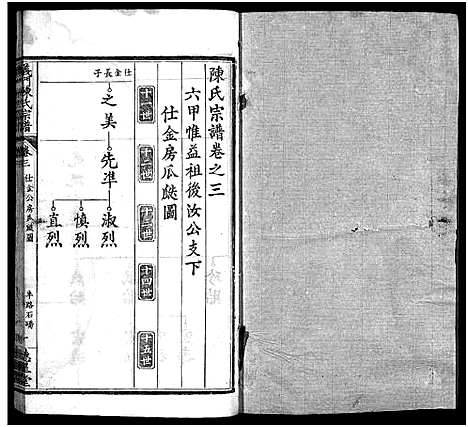 陳氏宗譜卷之三
六甲惟益祖後汝公支下
仕金房瓜瓞圖
十一世
十二世
十三世
十四世
十五世
仕金長子
之美
先準
淑烈
慎烈
直烈
陳氏宗譜
卷三
仕金公房瓜瓞圖